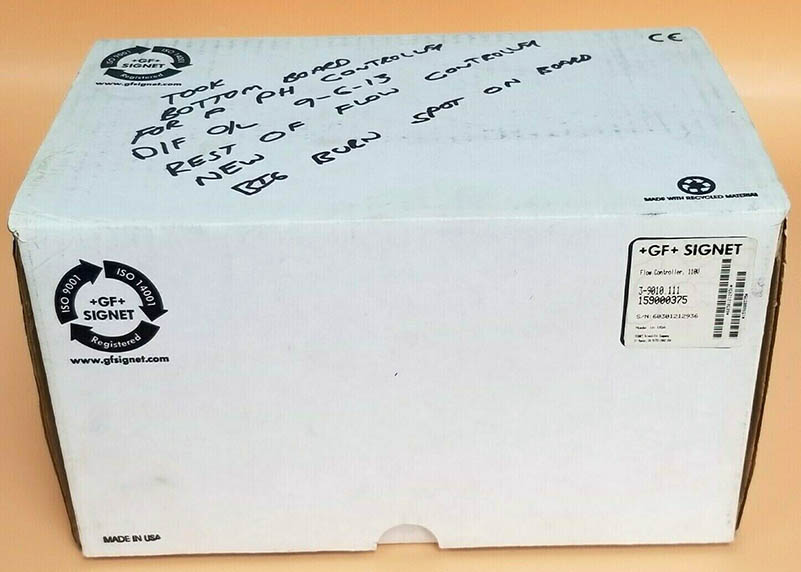 ISO 9001
ISO 14001
+GF+
SIGNET
Registered
www.gfsignet.com
CE
TOOK
BOTTOM BOARD
FOR A PH CONTROLLER
DIF O/L 9-6-13
REST OF FLOW CONTROLLER
NEW
BIG BURN SPOT ON BOARD
MADE WITH RECYCLED MATERIAL
ISO 9001
ISO 14001
+GF+
SIGNET
Registered
www.gfsignet.com
+GF+ SIGNET
Flow Controller, 110V
3-9010.111
159000375
S/N:60301212936
Made in USA
MADE IN USA